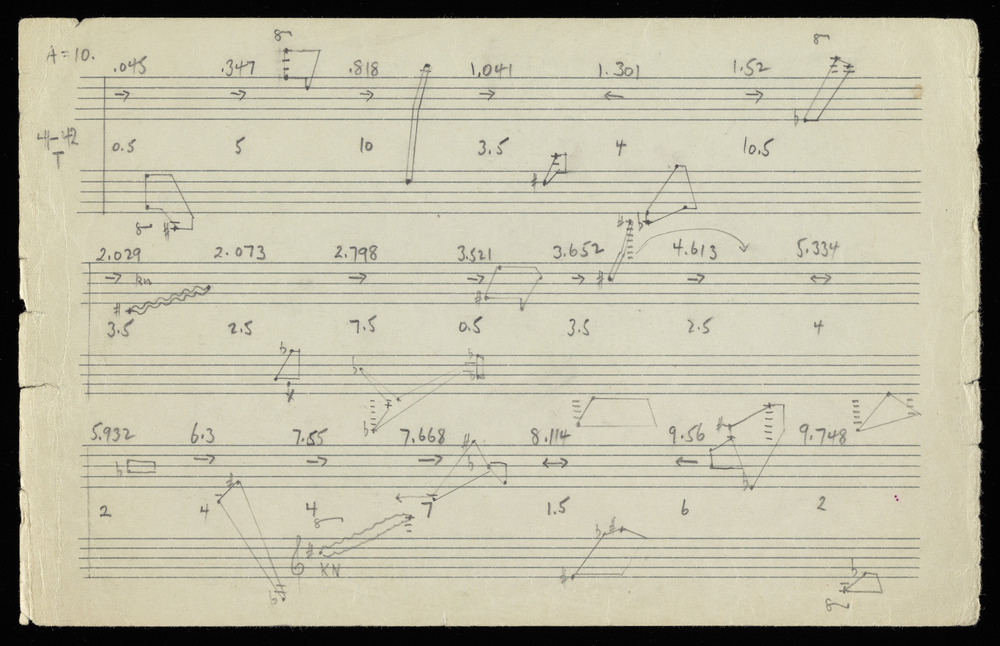 A=10.
8
8
.045 .347 .818 1.041 1.301 1.52
41-42
T
0.5 5 10 3.5 4 10.5
8
2.029 2.073 2.798 3.521 3.652 4.613 5.334
kn
3.5 2.5 7.5 0.5 3.5 2.5 4
5.932 6.3 7.55 7.668 8.114 9.56 9.748
2 4 4 7 1.5 6 2
8
KN
8